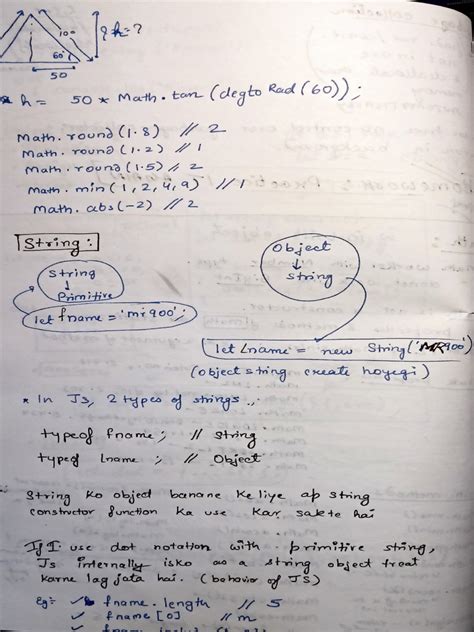 100
60°
50
h = ?
* h = 50 * Math.tan (degto Rad (60));
Math.round (1.8) // 2
Math.round (1.2) // 1
Math.round (1.5) // 2
Math.min (1, 2, 4, 9) // 1
Math.abs (-2) // 2
String :
String
Primitive
let fname = 'mr900';
Object
String
let Lname = new String('MR900')
(object string create hoyegi)
* In Js, 2 types of strings.
typeof fname; // String
typeof Lname; // Object
String ko object banane ke liye ap string
constructor function ka use kar sakte hai
If I use dot notation with primitive string,
Js internally isko as a string object treat
karne lag jata hai. (behavior of JS)
Eg:- fname.length // 5
fname [0] // m